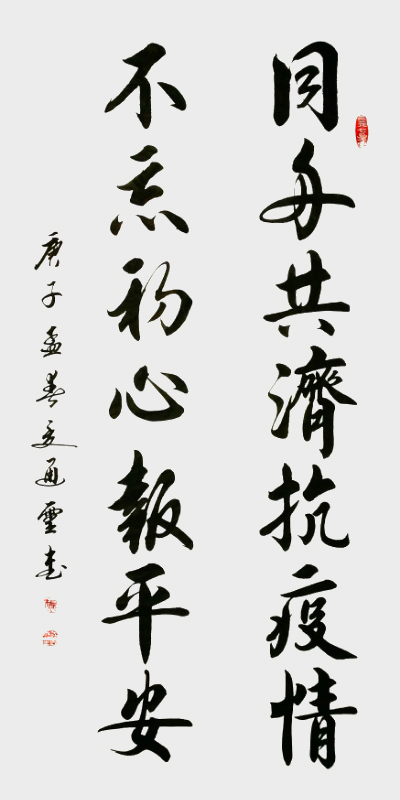 同舟共濟抗疫情
不忘初心報平安
庚子孟春